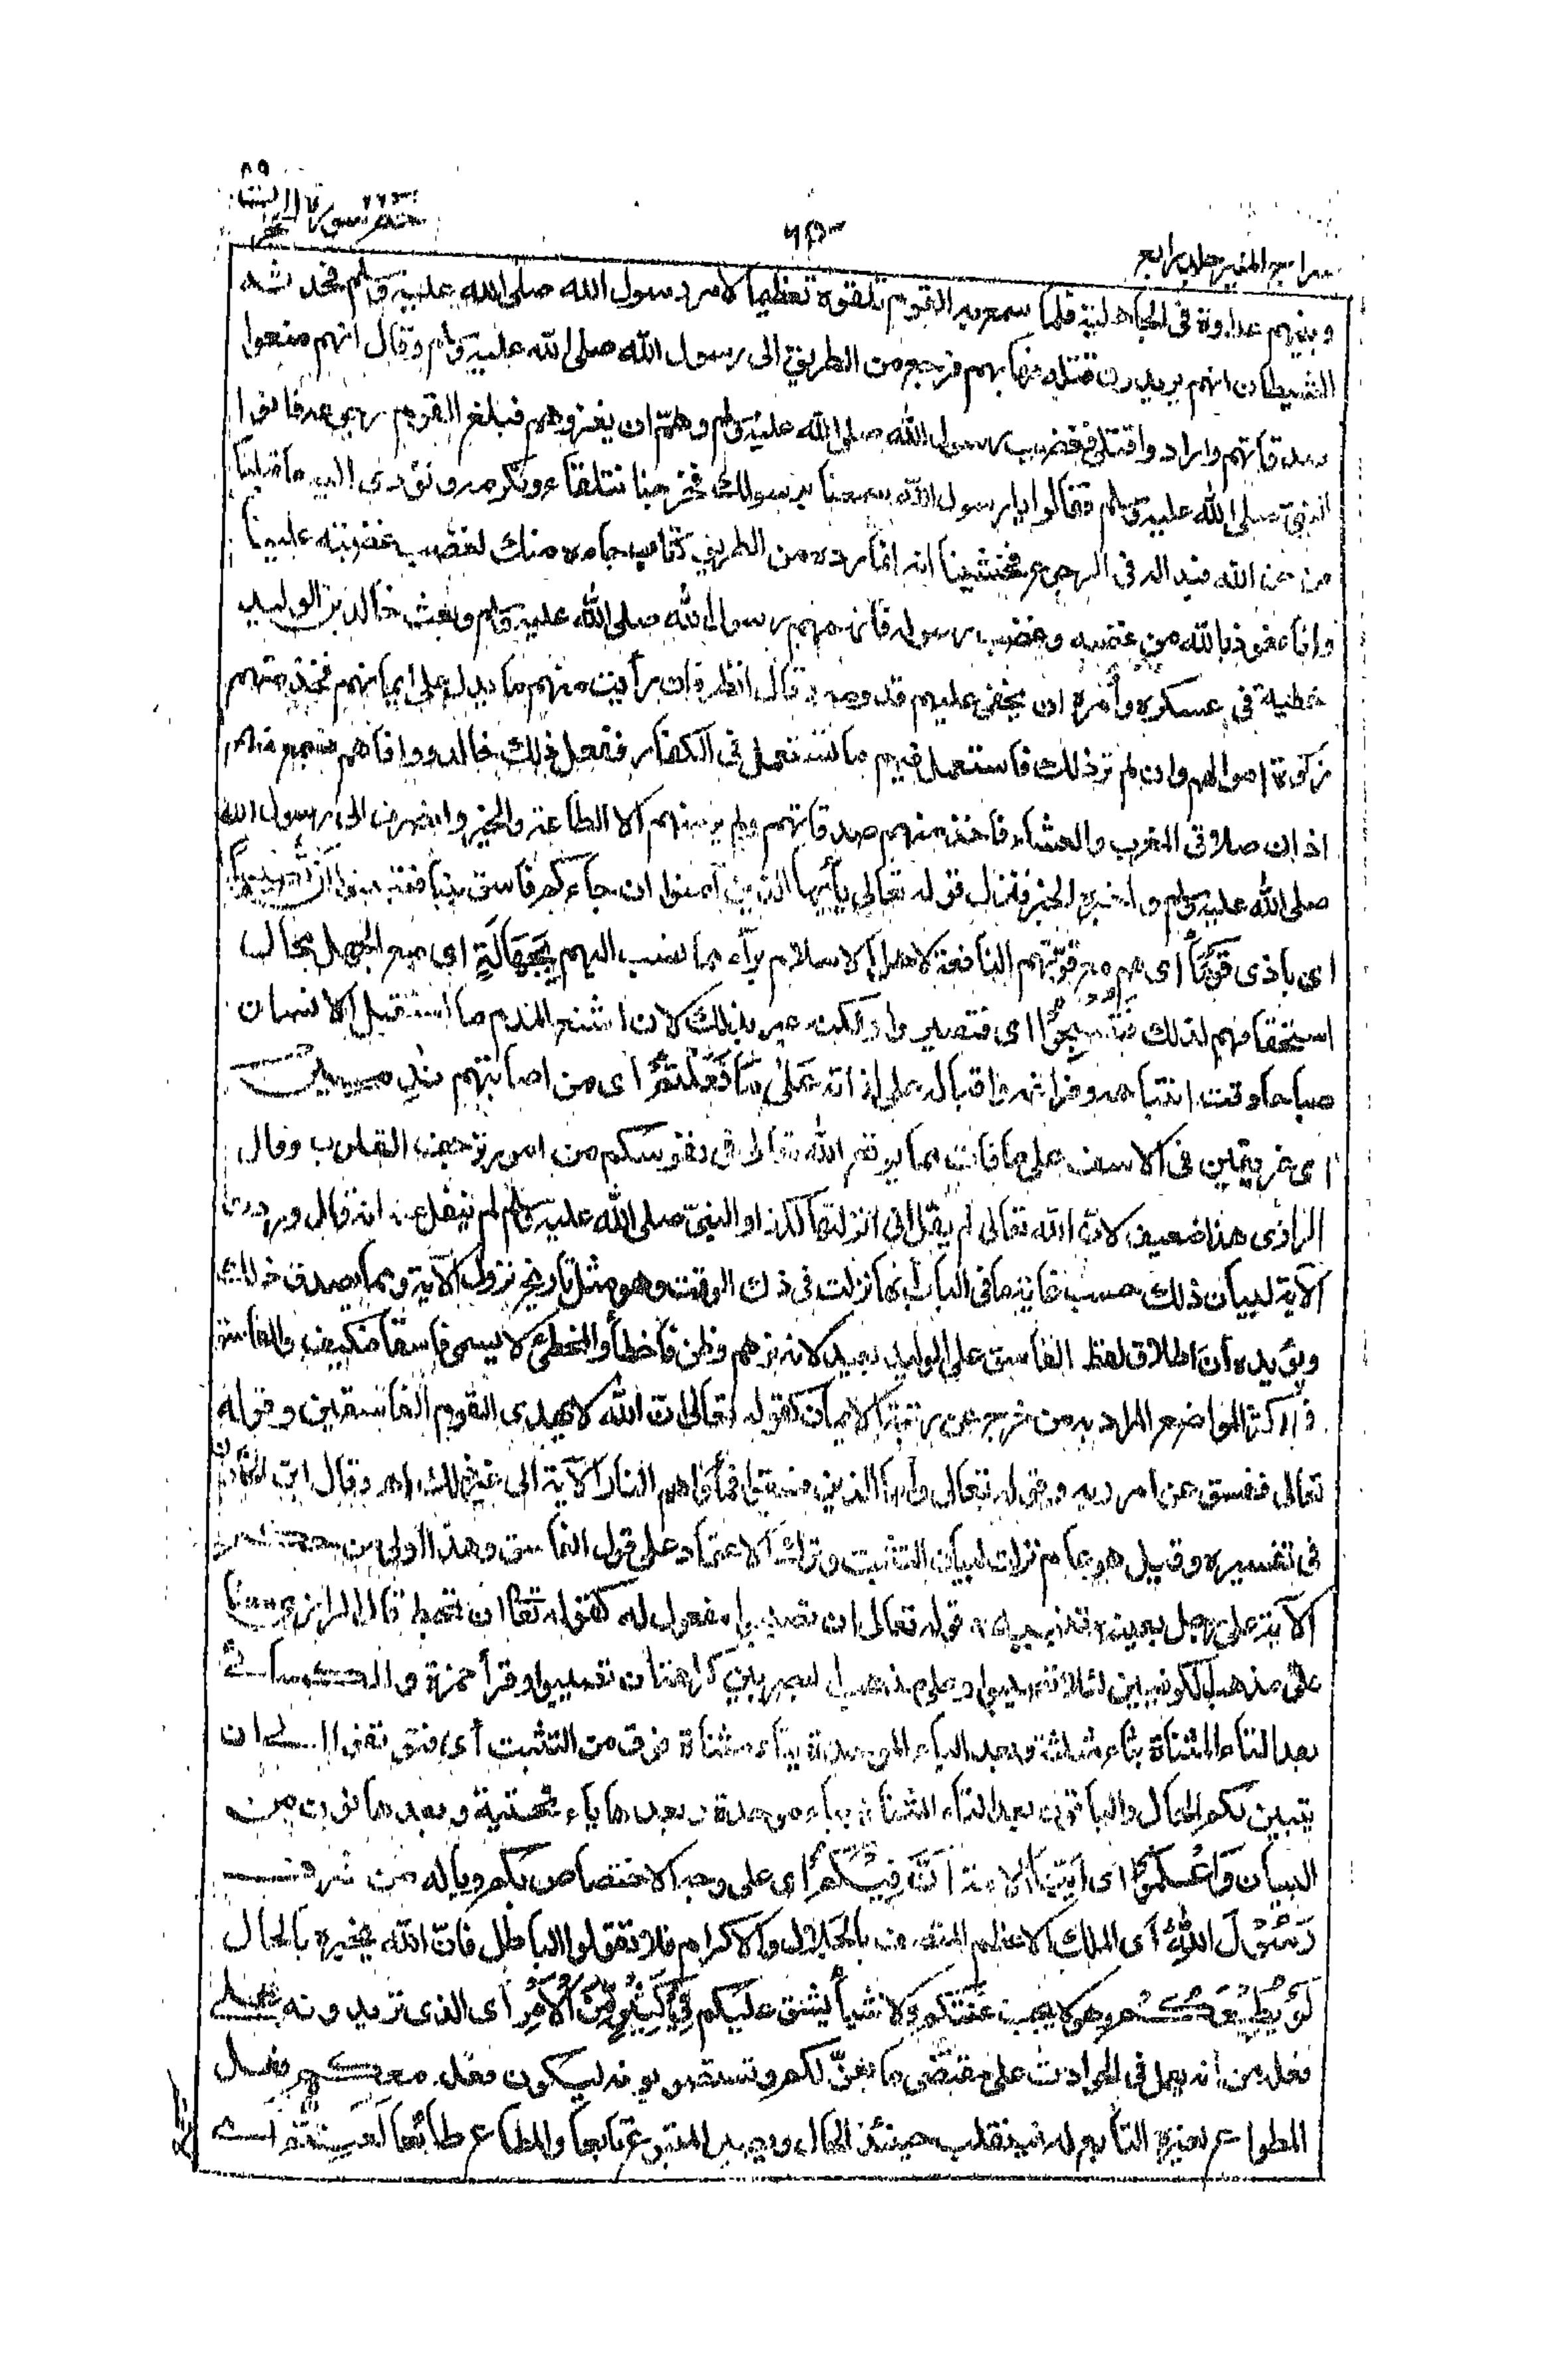 سراج المنير جلد رابع
وبينهم عداوة فى الجاهلية فلما سمع به القوم تلقوه تعظيما لامر رسول الله صلى الله عليه وسلم فحدثه
الشيطان انهم يريدون قتله فهابهم فرجع من الطريق الى رسول الله صلى الله عليه وسلم وقال انهم منعوا
صدقاتهم وارادوا قتلى فغضب رسول الله صلى الله عليه وسلم وهمّ ان يغزوهم فبلغ القوم رجوعه فاتوا
النبى صلى الله عليه وسلم فقالوا يا رسول الله سمعنا برسولك فخرجنا نتلقاه ونكرمه ونؤدى اليه ما قبلنا
من حق الله فبدا له فى الرجوع فخشينا انه انما رده من الطريق كتاب جاءه منك لغضب غضبته علينا
وانا نعوذ بالله من غضبه وغضب رسوله فاتهمهم رسول الله صلى الله عليه وسلم وبعث خالد بن الوليد
خفية فى عسكره وأمره ان يخفى عليهم قدومه وقال انظر فان رأيت منهم ما يدل على ايمانهم فخذ منهم
زكوة اموالهم وان لم تر ذلك فاستعمل فيهم ما تستعمل فى الكفار ففعل ذلك خالد ووافاهم فسمع منهم
اذان صلاتى المغرب والعشاء فاخذ منهم صدقاتهم ولم ير منهم الا الطاعة والخير وانصرف الى رسول الله
صلى الله عليه وسلم واخبره الخبر فنزل قوله تعالى يأيها الذين آمنوا ان جاءكم فاسق بنبا فتبينوا اَنْ تُصِيْبُوْا
اى باذى قَوْمًا أى هم مع قوّتهم النافعة لاهل الاسلام برآء مما نسب اليهم بِجَهَالَةٍ اى مع الجهل بحال
استحقاقهم لذلك فَتُصْبِحُوْا اى فتصيروا ولكنه عبر بذلك لان اشنع الندم ما استقبل الانسان
صباحا وقت انتباهه وفراغه واقباله على لذاته عَلٰى مَا فَعَلْتُمْ اى من اصابتهم نٰدِمِيْنَ
اى غريقين فى الاسف على ما فات مما يوقع الله تعالى فى نفوسكم من امور ترجف القلوب وقال
الرازى هذا ضعيف لان الله تعالى لم يقل انى انزلتها لكذا والنبى صلى الله عليه وسلم لم ينقل عنه انه قال وردت
الآية لبيان ذلك حسب غاية ما فى الباب انها نزلت فى ذلك الوقت وهو مثل تاريخ نزول الآية ومما يصدق ذلك
ويؤيده ان اطلاق لفظ الفاسق على الوليد بعيد لانه توهم وظن فأخطأ والمخطئ لا يسمى فاسقا فكيف والفاسق
فى اكثر المواضع المراد به من خرج عن ربقة الايمان كقوله تعالى ان الله لا يهدى القوم الفاسقين وقوله
تعالى ففسق عن امر ربه وقوله تعالى وأما الذين فسقوا فمأواهم النار الآية الى غير ذلك اه وقال ابن الخازن
فى تفسيره وقيل هو عام نزلت لبيان التثبت وترك الاعتماد على قول الفاسق وهذا أولى من
الآية على رجل بعينه تنبيه قوله تعالى ان تصيبوا مفعول له كقوله تعالى ان تحبط قال الرازى
على مذهب الكوفيين لئلا تصيبوا وعلى مذهب البصريين كراهة ان تصيبوا وقرأ حمزة والكسائى
بعد التاء المثناة بثاء مثلثة وبعد الياء الموحدة بتاء مثناة فوق من التثبت أى فتوقفوا الى ان
يتبين لكم الحال والباقون بعد التاء المثناة بباء موحدة وبعدها ياء تحتية وبعدها نون من
البيان وَاعْلَمُوْا اى ايتها الامة اَنَّ فِيْكُمْ اى على وجه الاختصاص بكم وياله من شرف
رَسُوْلَ اللّٰهِ أى الملك الاعظم المتصف بالجلال والاكرام فلا تقولوا الباطل فانّ الله يخبره بالحال
لَوْ يُطِيْعُكُمْ وهو لا يحب عنتكم ولا شيأ يشق عليكم فِيْ كَثِيْرٍ مِّنَ الْاَمْرِ أى الذى تريدونه على
فعله من انه يعمل فى الحوادث على مقتضى ما يعنّ لكم وتستصوبونه ليكون فعله معكم فعل
المطواع لغيره التابع له فينقلب حينئذ الحال ويصير المتبوع تابعا والمطاع طائعا لَعَنِتُّمْ اى